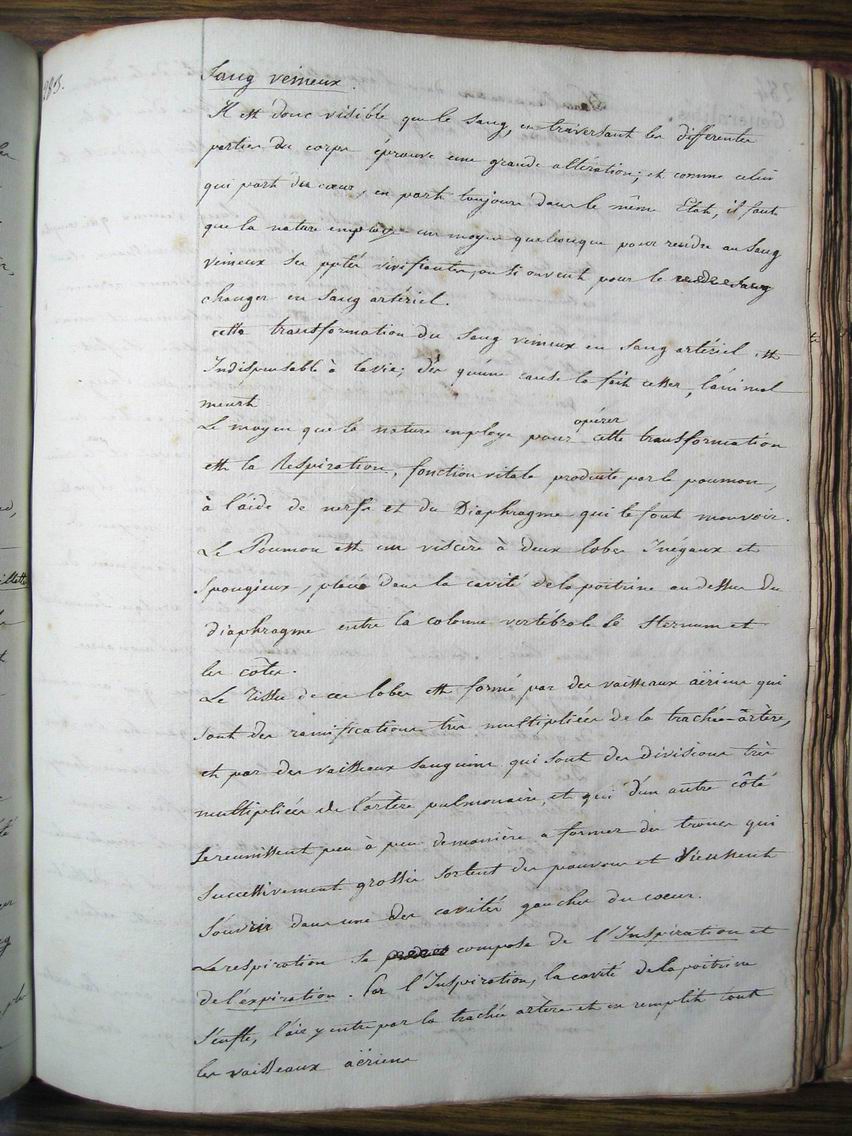 285.
Sang veineux.
Il est donc visible que le sang, en traversant les differentes
parties du corps éprouve une grande altération; et comme celui
qui part du cœur, en part toujours dans le même Etat, il faut
que la nature employe un moyen quelconque pour rendre au Sang
veineux ses pptés vivifiantes, ou si on veut pour le
changer en Sang artériel.
cette transformation du Sang veineux en Sang artériel est
Indispensable à la vie; dès qu'une cause la fait cesser, l'animal
meurt
opérer
Le moyen que la nature employe pour cette transformation
est la Respiration, fonction vitale produite par le poumon,
à l'aide de nerfs et du Diaphragme qui le font mouvoir.
Le Poumon est un viscère à deux lobes Inégaux et
Spongieux, placé dans la cavité de la poitrine au dessus du
diaphragme entre la colonne vertébrale le Sternum et
les côtes.
Le Tissu de ces lobes est formé par des vaisseaux aëriens qui
sont des ramifications très multipliées de la trachée-artère,
et par des vaisseaux Sanguins qui sont des divisions très
multipliées de l'artère pulmonaire, et qui d'un autre côté
se reunissent peu à peu de manière a former des troncs qui
Successivement grossis sortent des poumons et viennent
S'ouvrir dans une des cavités gauches du cœur.
La respiration se compose de l'Inspiration et
de l'expiration. Par l'Inspiration, la cavité de la poitrine
S'enfle, l'air y entre par la trachée artère et en remplit tout
les vaisseaux aëriens